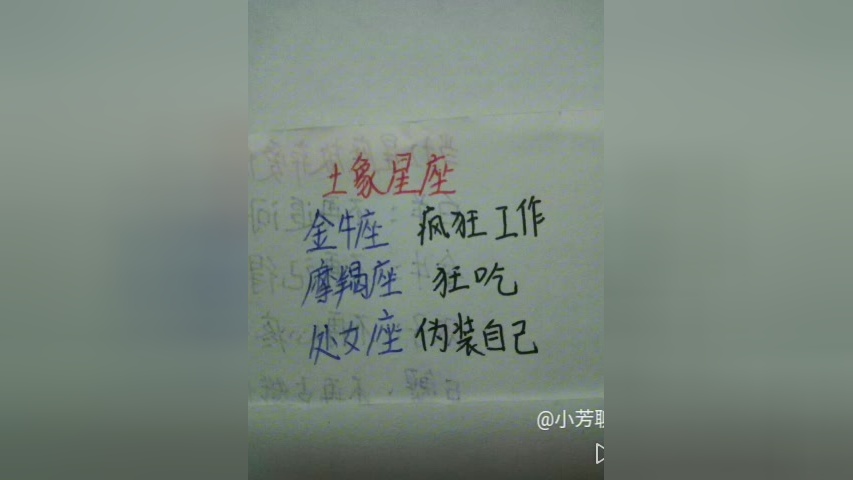 土象星座
金牛座 疯狂工作
摩羯座 狂吃
处女座 伪装自己
@小芳